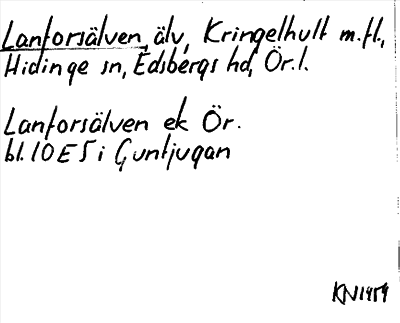 Lanforsälven, älv, Kringelhult m.fl.,
Hidinge sn, Edsbergs hd, Ör.l.
Lanforsälven ek Ör.
bl. 10E5i Guntjugan
KN1959